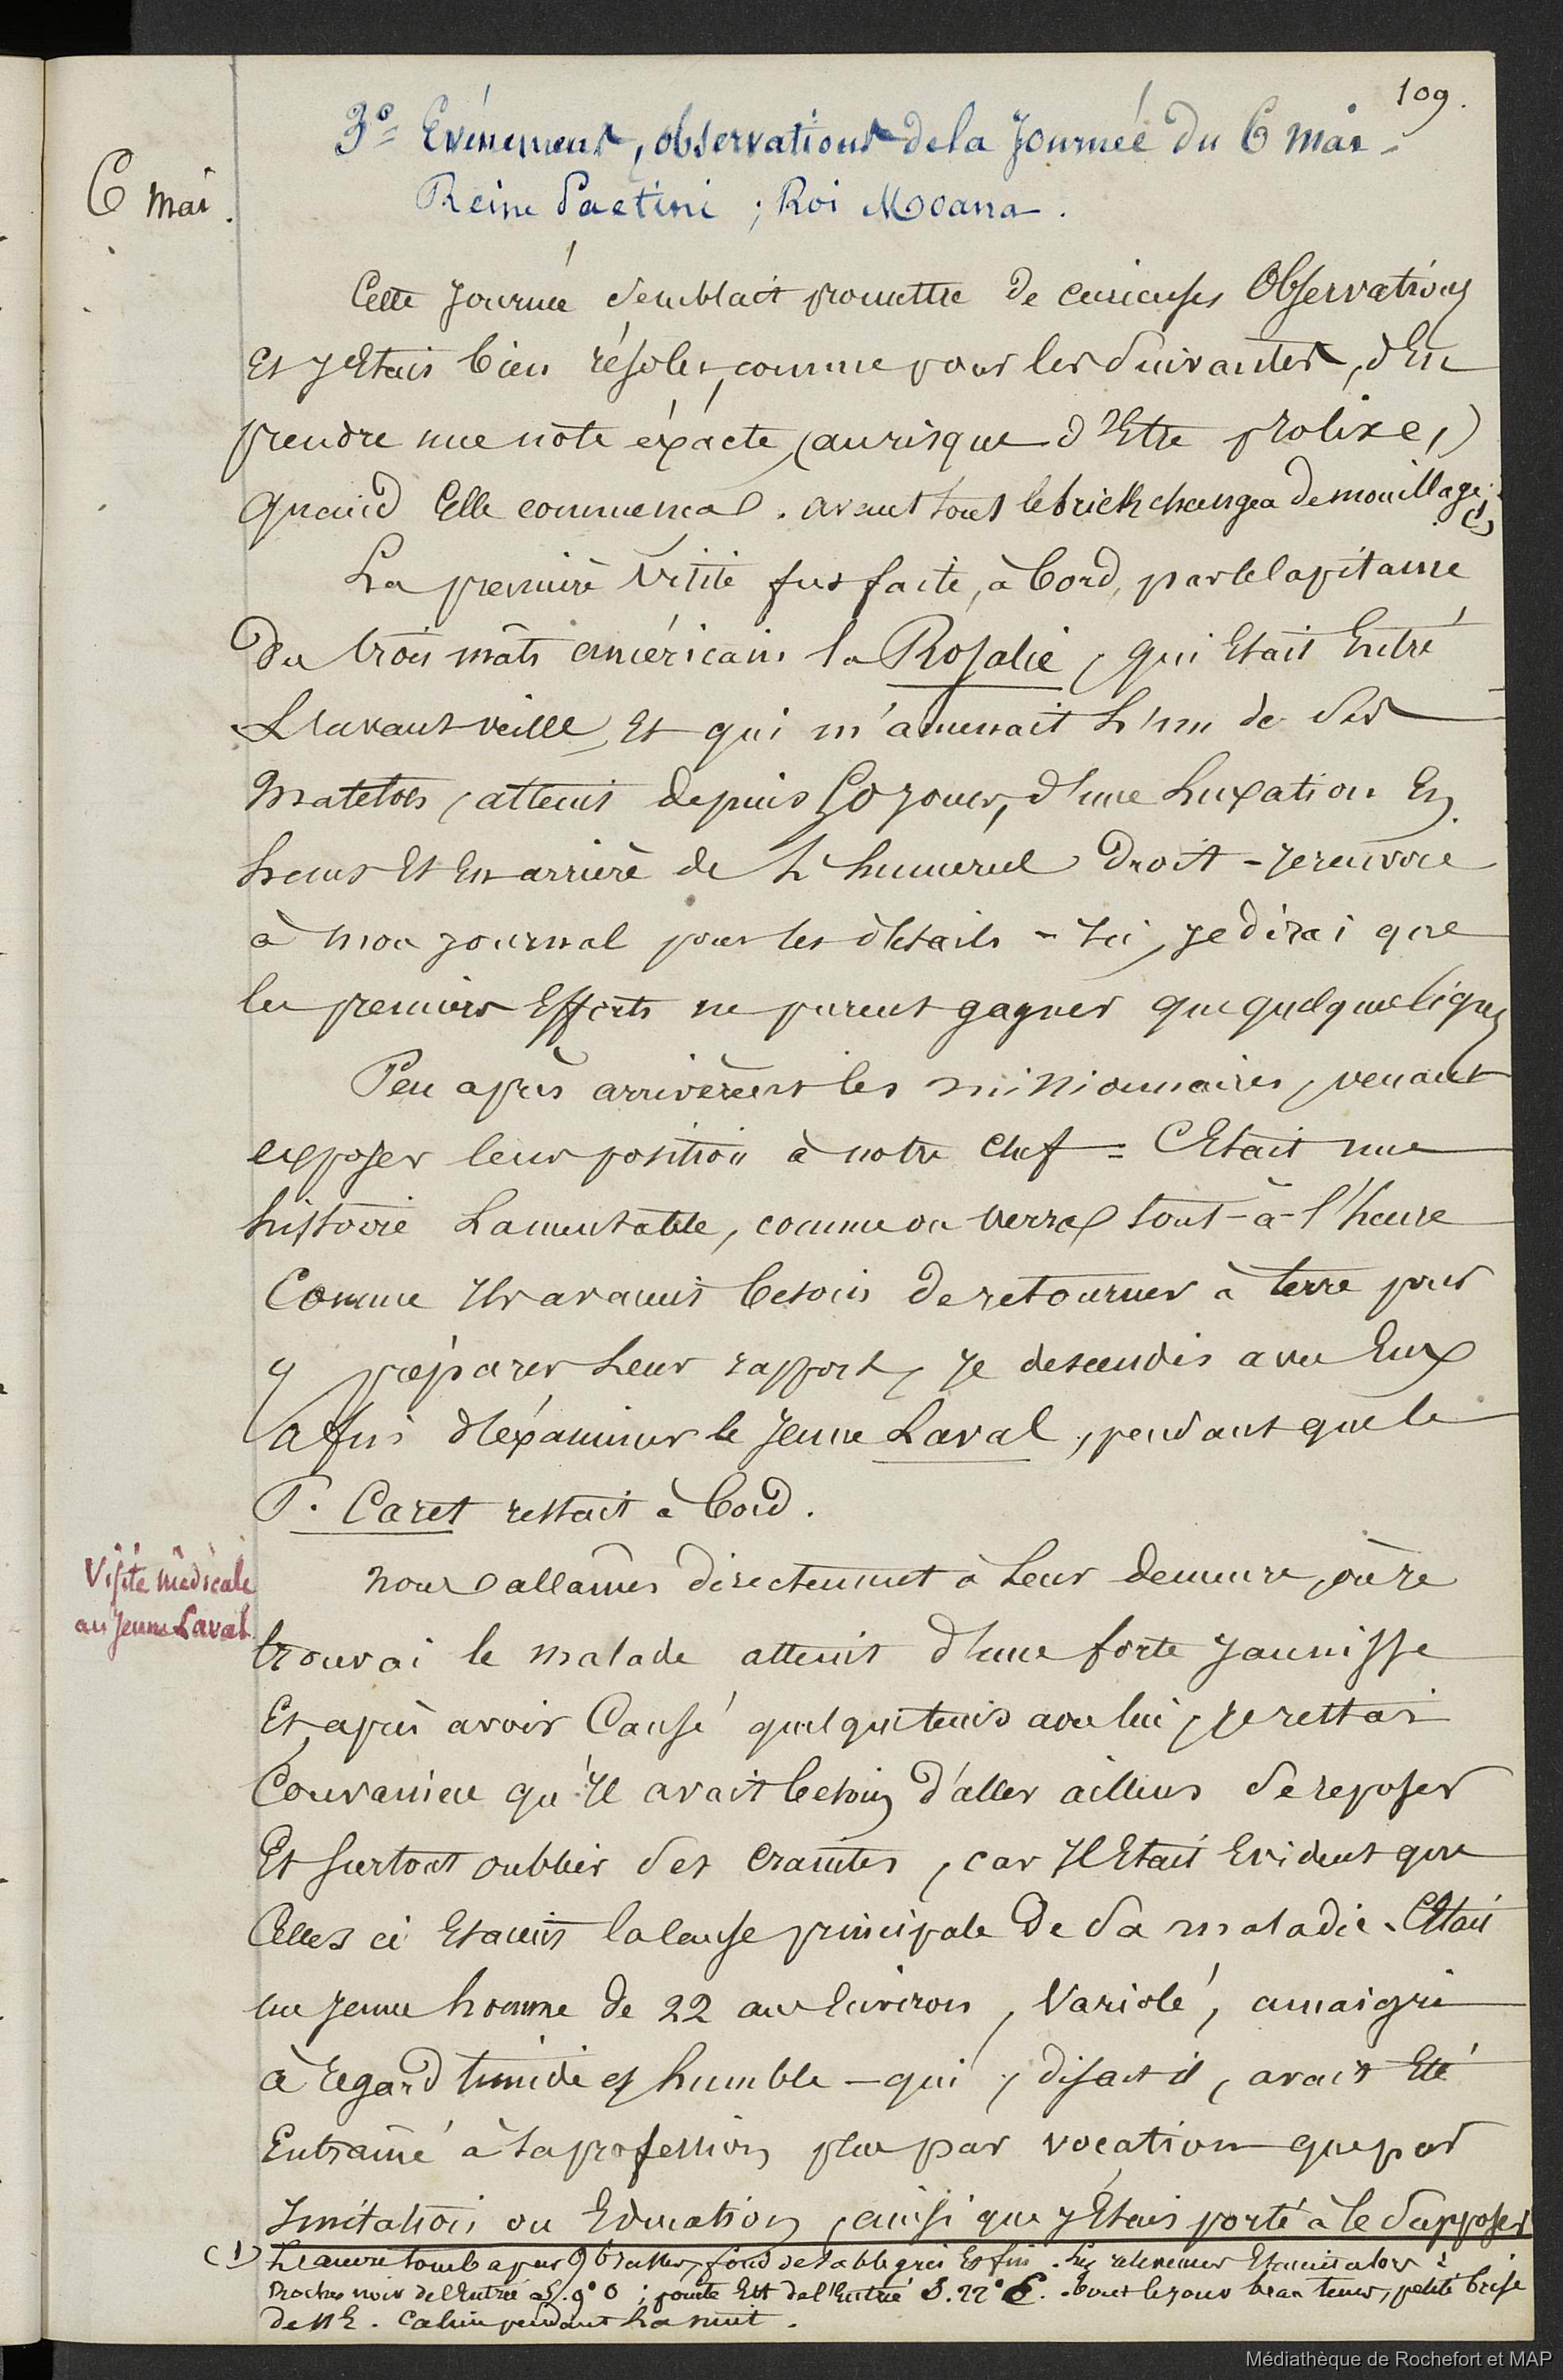 109.
3° Evénements, observations de la Journée du 6 mai -
Reine Paetini ; Roi Moana.
6 mai.
Cette Journée semblait promettre de curieuses Observations
Et J'Etais bien résolu, comme pour les suivantes, d'En
prendre une note éxacte, (au risque d'Etre prolixe,)
quand Elle commença. avant tout le brick changea de mouillage. (1)
La première visite fut faite, à bord, par le Capitaine
du trois mâts américain la Rosalie, qui Etait Entré
L'avant veille, Et qui m'amenait L'un de ses
Matelots, atteint depuis 50 Jours, d'une Luxation En
haut Et En arrière de L'humerus droit - Je renvoie
à mon Journal pour les détails - Ici, je dirai que
les premiers Efforts ne purent gagner que quelques lignes
Peu après arrivèrent les missionnaires, venant
exposer leur position à notre Chef = C'Etait une
histoire Lamentable, comme on verra tout-à-l'heure
Comme Ils avaient besoin de retourner à terre pour
y préparer Leur rapport, Je descendis avec Eux
afin d'éxaminer le Jeune Laval, pendant que le
P. Caret restait à bord.
Visite médicale
au Jeune Laval
Nous allâmes directement à Leur demeure, où je
trouvai le malade atteint d'une forte Jaunisse
Et, après avoir Causé quelque tems avec lui, je restai
Convaincu qu'Il avait besoin d'aller ailleurs se reposer
Et surtout oublier ses craintes, car Il Etait Evident que
Celles ci Etaient la Cause principale de sa maladie. C'Etait
un Jeune homme de 22 ans Environ, Variolé, amaigri
à regard timide et humble - qui, disait il, avait Eté
Entraîné à sa profession plus par vocation que par
Imitation ou Education, ainsi que J'Etais porté à le supposer
(1) L'ancre tomba par 9 brasses, fond de sable gris Et fin. Les relèvemens Etaient alors :
Roches noir de l'Entrée S. 9° O ; pointe Est de l'Entrée S. 22° E. Tout le jour beau tems, petite brise
de NE. Calme pendant La nuit.
Médiathèque de Rochefort et MAP